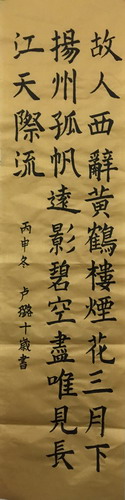 故人西辭黃鶴樓煙花三月下
揚州孤帆遠影碧空盡唯見長
江天際流
丙申冬 卢璐十歲書